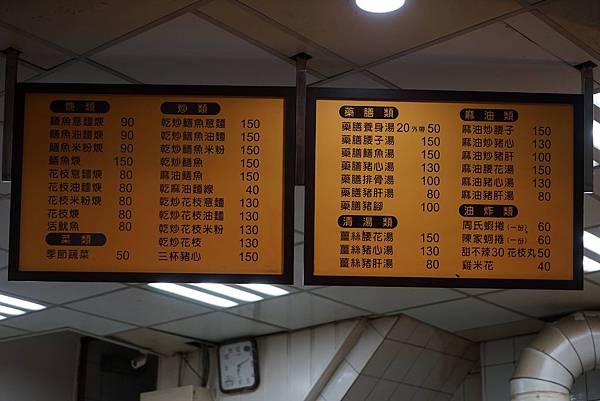 燴類
鱔魚意麵焿 90
鱔魚油麵焿 90
鱔魚米粉焿 90
鱔魚焿 150
花枝意麵焿 80
花枝油麵焿 80
花枝米粉焿 80
花枝焿 80
活魷魚 80
菜類
季節蔬菜 50
炒類
乾炒鱔魚意麵 150
乾炒鱔魚油麵 150
乾炒鱔魚米粉 150
乾炒鱔魚 150
麻油鱔魚 150
乾麻油麵線 40
乾炒花枝意麵 130
乾炒花枝油麵 130
乾炒花枝米粉 130
乾炒花枝 130
三杯豬心 150
藥膳類
藥膳養身湯20外帶50
藥膳腰子湯 150
藥膳鱔魚湯 150
藥膳豬心湯 130
藥膳排骨湯 100
藥膳豬肝湯 80
藥膳豬腳 100
清湯類
薑絲腰花湯 150
薑絲豬心湯 130
薑絲豬肝湯 80
麻油類
麻油炒腰子 150
麻油炒豬心 130
麻油炒豬肝 100
麻油腰花湯 150
麻油豬心湯 130
麻油豬肝湯 80
油炸類
周氏蝦捲(一份) 60
陳家蚵捲(一份) 60
甜不辣30 花枝丸50
雞米花 40